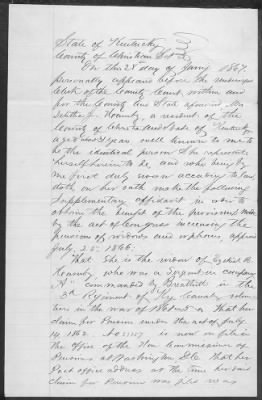 State of Kentucky
County of Christian Sct
On this 28 day of Jany 1867
personally appeared before the undersigned
Clerk of the County Court within and
for the County and State aforesaid Mrs
J. Hamby, a resident of the
County of Christian and State of Kentucky
aged years well known to me to
be the identical person she represents
herself herein to be, and who being by
me first duly sworn according to law
doth on her oath make the following
Supplementary affidavit in order to
obtain the benefit of the provisions made
by the act of Congress increasing the
pensions of widows and orphans, approved
July, 25, 1866.
That she is the widow of Ezekiel B.
Hamby, who was a Sergeant in company
"A" commanded by Breathitt in the
3d Regiment of Ky Cavalry volun
teers in the war of that her
claim for Pension under the act of July
14 1862. No is now on file in
the office of the Hon Commissioner of
Pensions at Washington City That her
Post office address at the time her said
claim for Pension was filed was